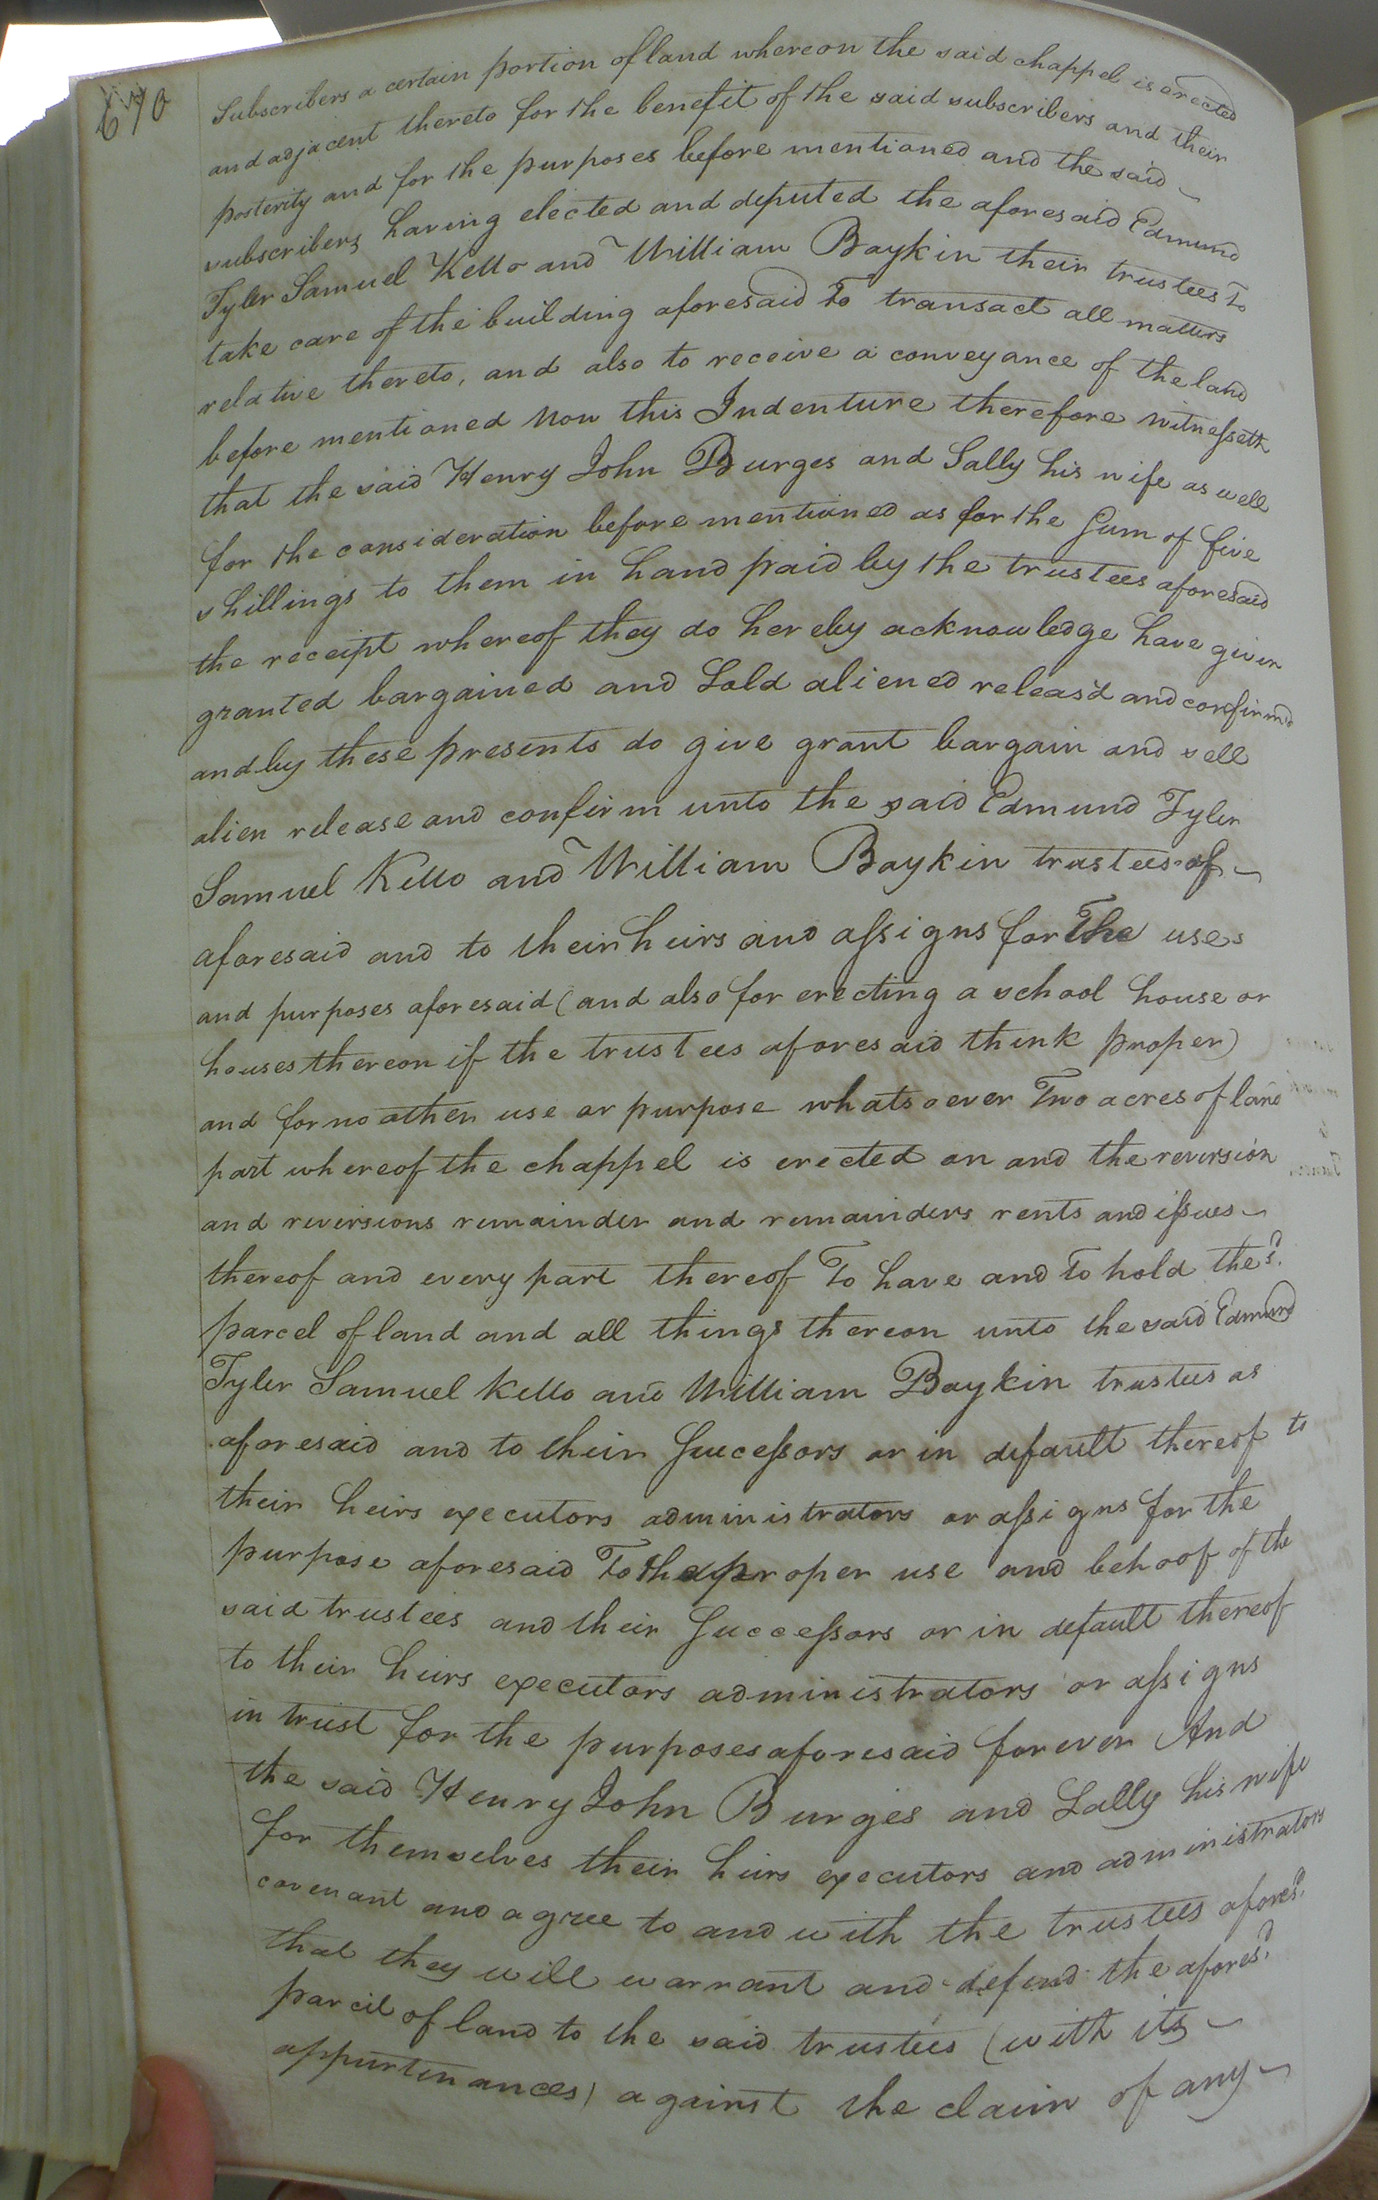 Subscribers a certain portion of land whereon the said chappel is erected
and adjacent thereto for the benefit of the said subscribers and their
posterity and for the purposes before mentioned and the said
subscribers having elected and deputed the aforesaid Edmund
Tyler Samuel Kello and William Boykin their trustees To
take care of the building aforesaid To transact all matters
relative thereto, and also to receive a conveyance of the land
before mentioned Now this Indenture therefore witnesseth
that the said Henry John Burges and Sally his wife as well
for the consideration before mentioned as for the Sum of five
shillings to them in hand paid by the trustees aforesaid
the receipt whereof they do hereby acknowledge have given
granted bargained and Sold aliened releas'd and confirmd
and by these presents do give grant bargain and sell
alien release and confirm unto the said Edmund Tyler
Samuel Kello and William Boykin trustees of
aforesaid and to their heirs and assigns for The uses
and purposes aforesaid (and also for erecting a school house or
houses thereon if the trustees aforesaid think proper)
and for no other use or purpose whatsoever Two acres of land
part whereof the chappel is erected on and the reversion
and reversions remainder and remainders rents and issues
thereof and every part thereof To have and To hold the sd.
parcel of land and all things thereon unto the said Edmund
Tyler Samuel Kello and William Boykin trustees as
aforesaid and to their Successors or in default thereof to
their heirs executors administrators or assigns for the
purpose aforesaid To the proper use and behoof of the
said trustees and their Successors or in default thereof
to their heirs executors administrators or assigns
in trust for the purposes aforesaid forever And
the said Henry John Burges and Sally his wife
for themselves their heirs executors and administrators
covenant and agree to and with the trustees aforesd.
that they will warrant and defend the aforesd.
parcil of land to the said trustees (with its
appurtinances) against the claim of any